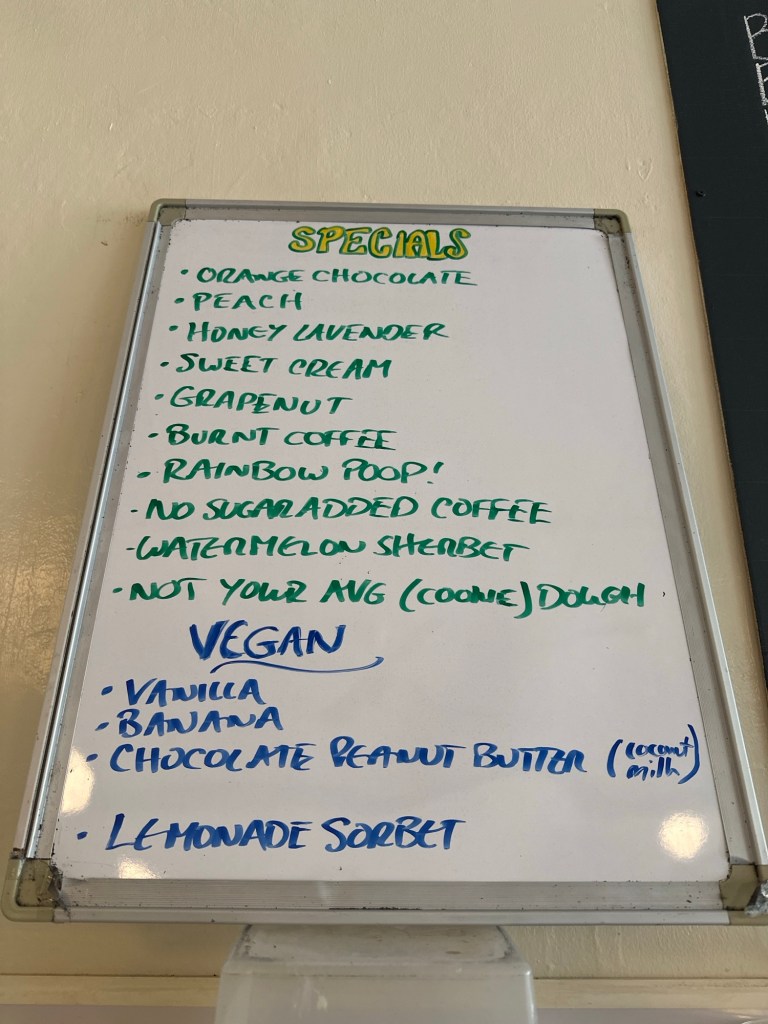 SPECIALS
• ORANGE CHOCOLATE
• PEACH
• HONEY LAVENDER
• SWEET CREAM
• GRAPENUT
• BURNT COFFEE
• RAINBOW POOP!
• NO SUGAR ADDED COFFEE
• WATERMELON SHERBET
• NOT YOUR AVG (COOKIE) DOUGH
VEGAN
• VANILLA
• BANANA
• CHOCOLATE PEANUT BUTTER (coconut milk)
• LEMONADE SORBET